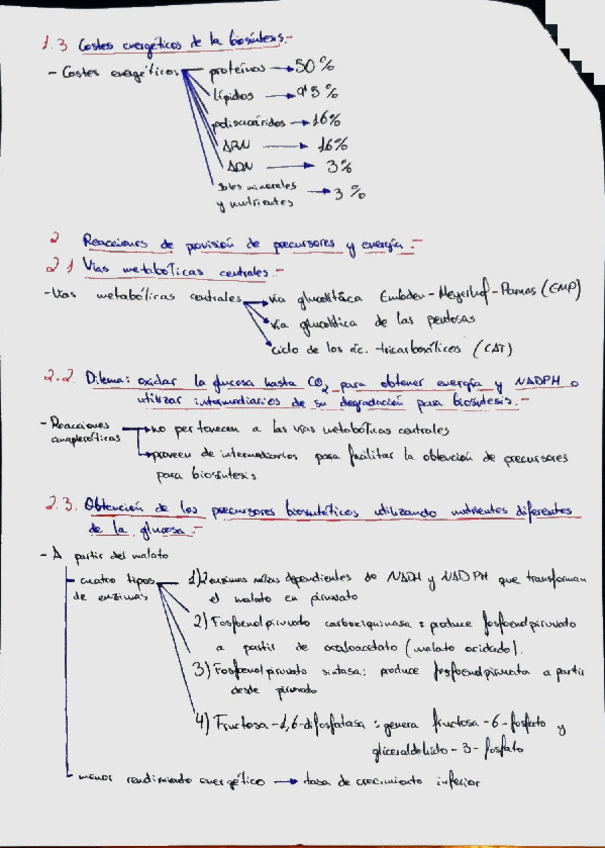 1.3 Costes energéticos de la biosíntesis.-
- Costes energéticos
proteínas → 50 %
lípidos → 9'5 %
polisacáridos → 16%
ARN → 16%
ADN → 3%
sales minerales
y nutrientes → 3 %
2 Reacciones de provisión de precursores y energía.-
2.1 Vías metabólicas centrales.-
- Vías metabólicas centrales → vía glucolítica Embden-Meyerhof-Parnas (EMP)
→ vía glucolítica de las pentosas
→ ciclo de los ác. tricarboxílicos (CAT)
2.2. Dilema: oxidar la glucosa hasta CO2 para obtener energía y NADPH o
utilizar intermediarios de su degradación para biosíntesis.-
- Reacciones → no pertenecen a las vías metabólicas centrales
anapleróticas
→ proveen de intermediarios para facilitar la obtención de precursores
para biosíntesis
2.3. Obtención de los precursores biosintéticos utilizando nutrientes diferentes
de la glucosa.-
- A partir del malato
- cuatro tipos 1) 2 enzimas dependientes de NADH y NADPH que transforman
de enzimas el malato en piruvato
2) Fosfoenolpiruvato carboxiquinasa: produce fosfoenolpiruvato
a partir de oxaloacetato (malato oxidado).
3) Fosfoenolpiruvato sintasa: produce fosfoenolpiruvato a partir
desde piruvato
4) Fructosa-1,6-difosfatasa: genera fructosa-6-fosfato y
gliceraldehído-3-fosfato
- menor rendimiento energético → tasa de crecimiento inferior